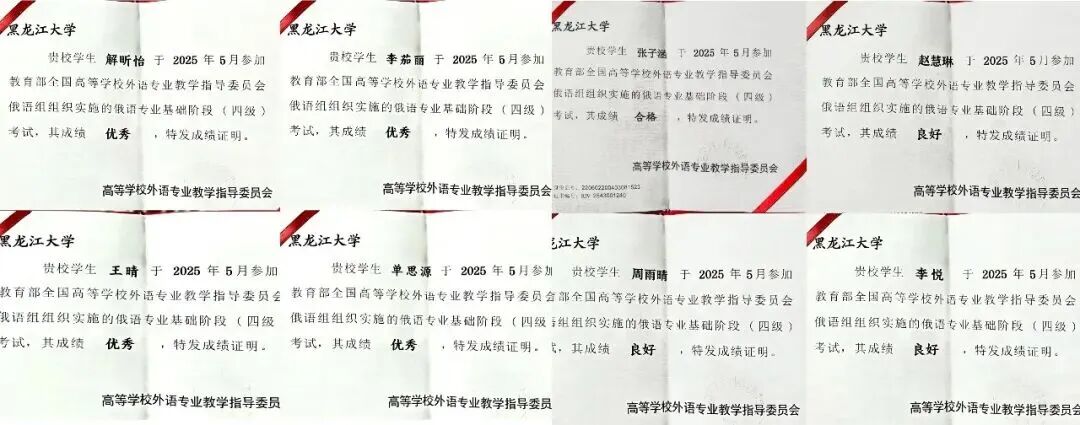 黑龙江大学
贵校学生 解昕怡 于 2025 年 5 月参加
教育部全国高等学校外语专业教学指导委员会
俄语组组织实施的俄语专业基础阶段（四级）
考试，其成绩 优秀 ，特发成绩证明。
高等学校外语专业教学指导委员会
黑龙江大学
贵校学生 李茹丽 于 2025 年 5 月参加
教育部全国高等学校外语专业教学指导委员会
俄语组组织实施的俄语专业基础阶段（四级）
考试，其成绩 优秀 ，特发成绩证明。
高等学校外语专业教学指导委员会
贵校学生 张子涵 于 2025 年 5 月参加
教育部全国高等学校外语专业教学指导委员会
俄语组组织实施的俄语专业基础阶段（四级）
考试，其成绩 合格 ，特发成绩证明。
高等学校外语专业教学指导委员会
黑龙江大学
贵校学生 赵慧琳 于 2025 年 5 月参加
教育部全国高等学校外语专业教学指导委员会
俄语组组织实施的俄语专业基础阶段（四级）
考试，其成绩 良好 ，特发成绩证明。
高等学校外语专业教学指导委员会
黑龙江大学
贵校学生 王晴 于 2025 年 5 月参加
教育部全国高等学校外语专业教学指导委员会
俄语组组织实施的俄语专业基础阶段（四级
考试，其成绩 优秀 ，特发成绩证明。
高等学校外语专业教学指导委员会
黑龙江大学
贵校学生 单思源 于 2025 年 5 月参加
教育部全国高等学校外语专业教学指导委员
俄语组组织实施的俄语专业基础阶段（四级
考试，其成绩 优秀 ，特发成绩证明。
高等学校外语专业教学指导委员
黑龙江大学
贵校学生 周雨晴 于 2025 年 5 月参加
教育部全国高等学校外语专业教学指导委员会
俄语组组织实施的俄语专业基础阶段（四级）
试，其成绩 良好 ，特发成绩证明。
高等学校外语专业教学指导委员会
黑龙江大学
贵校学生 李悦 于 2025 年 5 月参加
教育部全国高等学校外语专业教学指导委员会
俄语组组织实施的俄语专业基础阶段（四级）
考试，其成绩 良好 ，特发成绩证明。
高等学校外语专业教学指导委员会